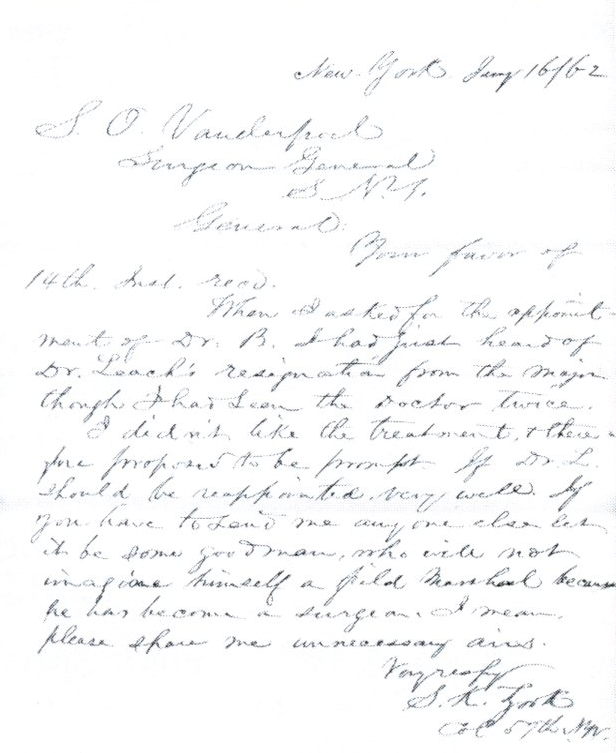 New-York Jany 16/62
S. O. Vanderpoel
Surgeon General
S. N.Y.
General:
Your favor of
14th. Inst. recd.
When I asked for the appoint-
ment of Dr. B. I had just heard of
Dr. Leach's resignation from the Major
though I had seen the Doctor twice.
I didn't like the treatment, & there-
fore proposed to be prompt. If Dr. L.
should be reappointed, very well. If
you have to send me any one else let
it be some good man, who will not
imagine himself a field Marshal because
he has become a surgeon. I mean,
please spare me unnecessary airs.
Very respy
S. K. Zook
Col 57th N.Y.V.